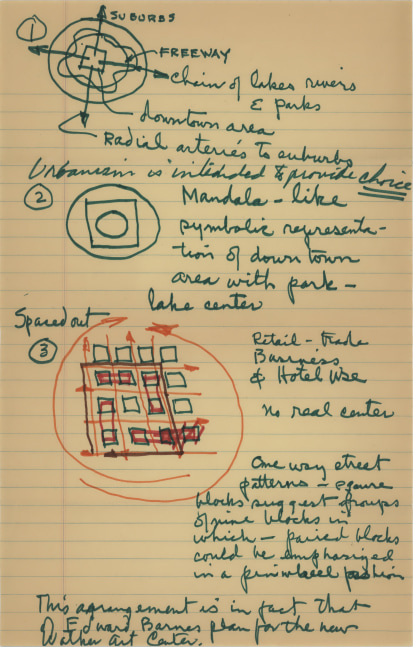 1
SUBURBS
FREEWAY
Chain of lakes rivers
& parks
downtown area
Radial arteries to suburbs
Urbanism is intended to provide choice
2
Mandala-like
symbolic representa-
tion of downtown
area with park-
lake center
Spaced out
3
Retail-trade
Business
& Hotel Use
No real center
One way street
patterns - square
blocks suggest groups
of nine blocks in
which - paired blocks
could be emphasized
in a pinwheel fashion
This arrangement is in fact that
of Edward Barnes plan for the new
Walker Art Center.